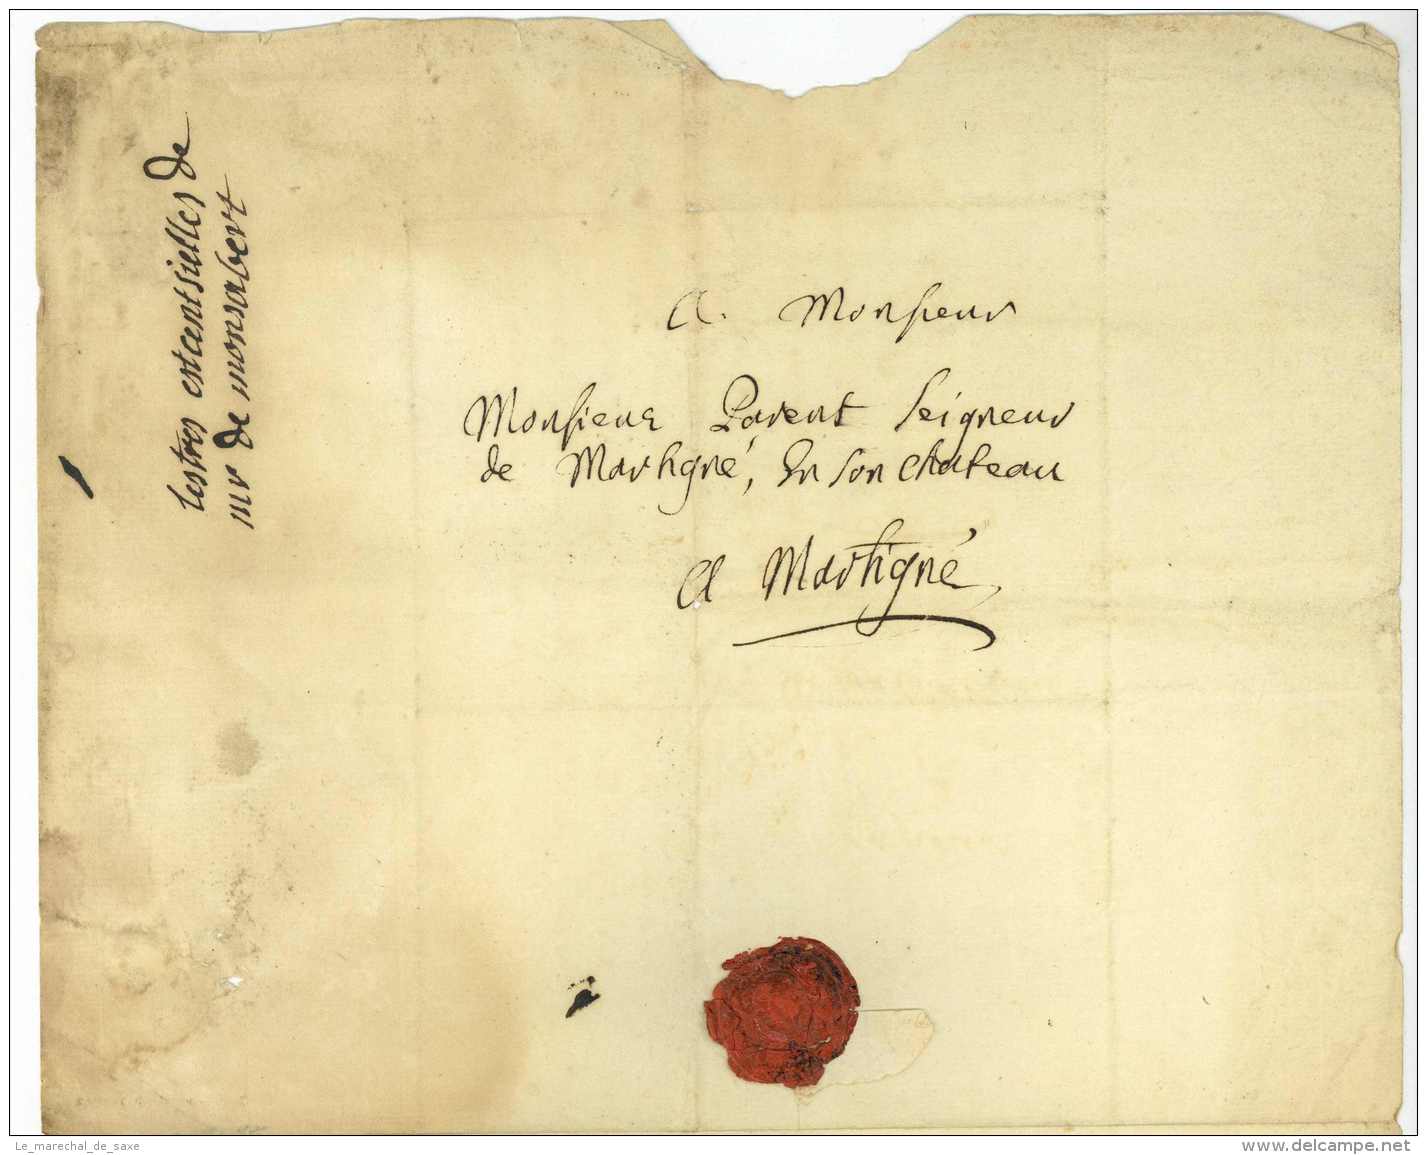 A. Monsieur
Monsieur Parent Seigneur
de Martigné, En son chateau
A Martigné
lestres essantsielles de
mr de monsabert
Le_marechal_de_saxe
www.delcampe.net